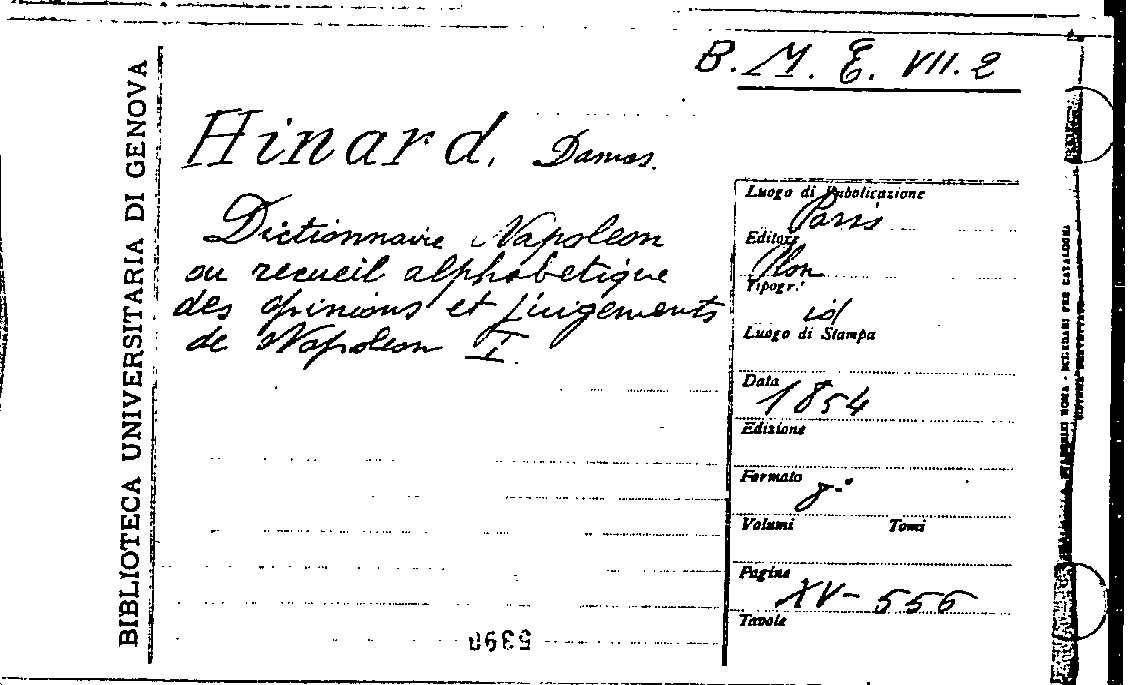 B. M. E. VII. 2
BIBLIOTECA UNIVERSITARIA DI GENOVA
Hinard, Damas.
Dictionnaire Napoleon
ou recueil alphabetique
des opinions et jugements
de Napoleon I.
Luogo di Pubblicazione
Paris
Editore
Plon
Tipogr.
id
Luogo di Stampa
Data
1854
Edizione
Formato
8°
Volumi Tomi
Pagine
XV-556
Tavole